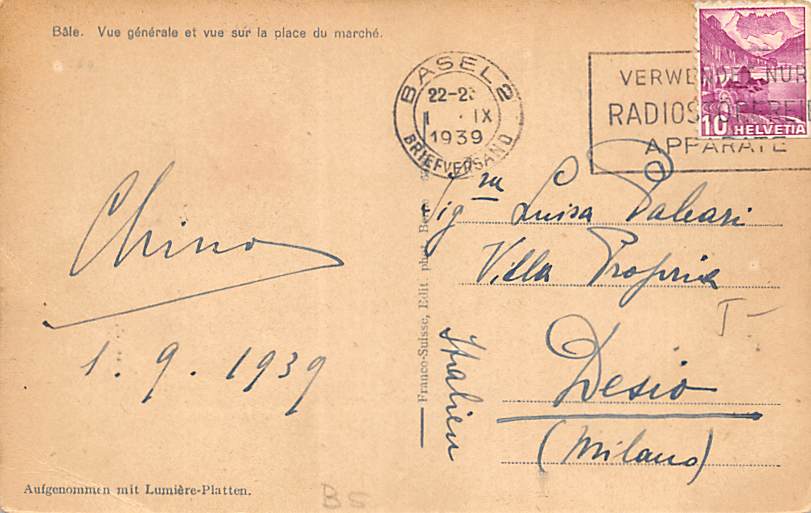 Bâle. Vue générale et vue sur la place du marché.
BASEL 2
22-2
1. IX
1939
BRIEFVERSAND
VERWENDET NUR
RADIOSTÖRFREIE
APPARATE
10 HELVETIA
Chino
1. 9. 1939
Aufgenommen mit Lumière-Platten.
BS
Franco-Suisse, Edit. phot. Berne
Sigra Luisa Paleari
Villa Propria
Desio
(Milano)
Italien
T